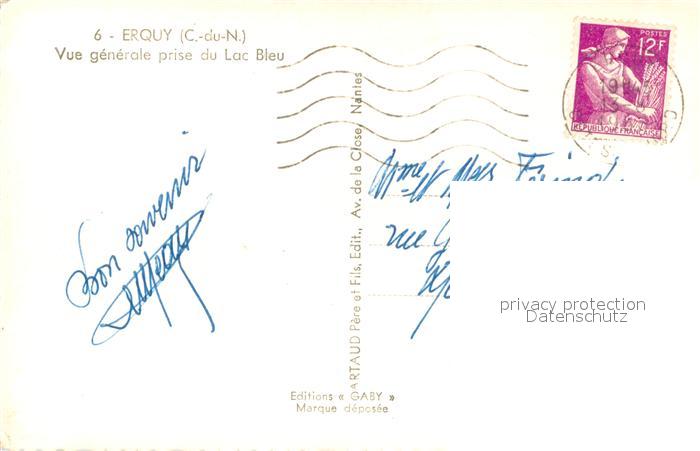 6 - ERQUY (C.-du-N.)
Vue générale prise du Lac Bleu
POSTES
12F
REPUBLIQUE FRANÇAISE
Bon souvenir
ARTAUD Père et Fils, Edit., Av. de la Close, Nantes
rue
privacy protection
Datenschutz
Editions « GABY »
Marque déposée